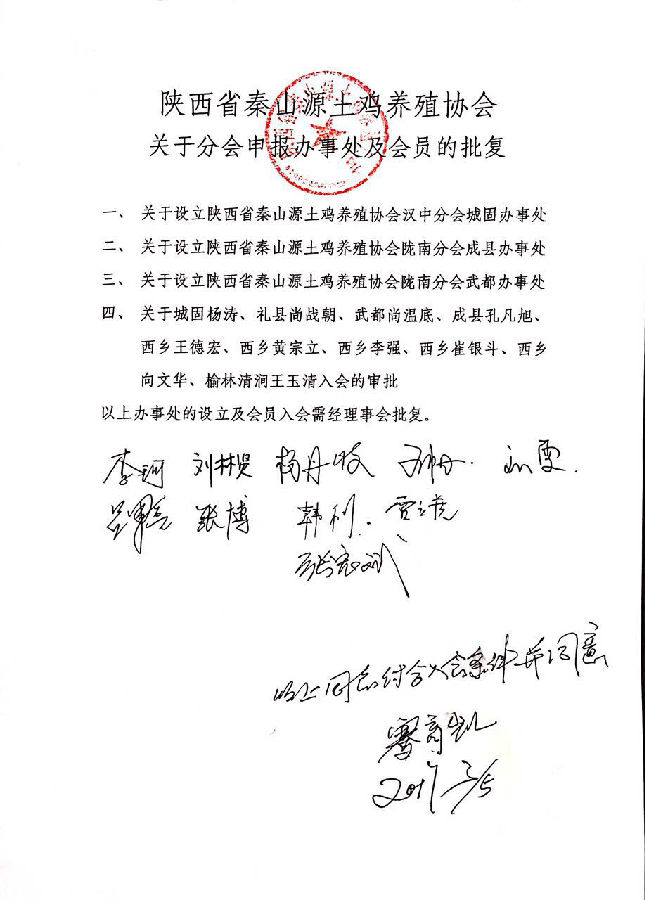 陕西省秦山源土鸡养殖协会
关于分会申报办事处及会员的批复
一、关于设立陕西省秦山源土鸡养殖协会汉中分会城固办事处
二、关于设立陕西省秦山源土鸡养殖协会陇南分会成县办事处
三、关于设立陕西省秦山源土鸡养殖协会陇南分会武都办事处
四、关于城固杨涛、礼县尚战朝、武都尚温底、成县孔凡旭、
西乡王德宏、西乡黄宗立、西乡李强、西乡崔银斗、西乡
向文华、榆林清涧王玉清入会的审批
以上办事处的设立及会员入会需经理事会批复。
李珂 杨丹 刘雯
张博 韩利
以上同志符合入会条件并同意
2017 3/5